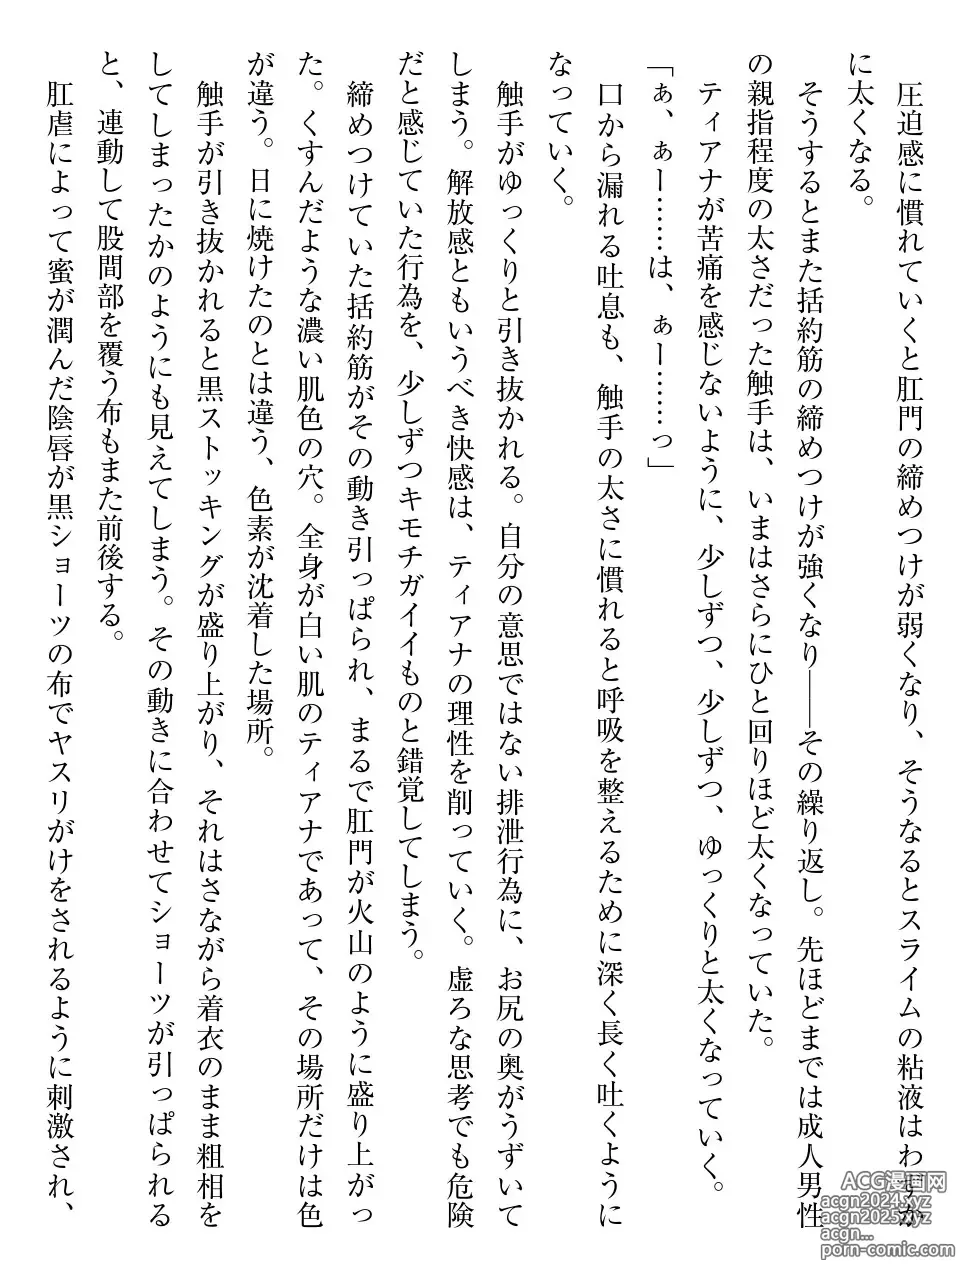 圧迫感に慣れていくと肛門の締めつけが弱くなり、そうなるとスライムの粘液はわずか
に太くなる。
そうするとまた括約筋の締めつけが強くなり――その繰り返し。先ほどまでは成人男性
の親指程度の太さだった触手は、いまはさらにひと回りほど太くなっていた。
ティアナが苦痛を感じないように、少しずつ、少しずつ、ゆっくりと太くなっていく。
「ぁ、ぁー……は、ぁー……っ」
口から漏れる吐息も、触手の太さに慣れると呼吸を整えるために深く長く吐くように
なっていく。
触手がゆっくりと引き抜かれる。自分の意思ではない排泄行為に、お尻の奥がうずいて
しまう。解放感ともいうべき快感は、ティアナの理性を削っていく。虚ろな思考でも危険
だと感じていた行為を、少しずつキモチガイイものと錯覚してしまう。
締めつけていた括約筋がその動き引っぱられ、まるで肛門が火山のように盛り上がっ
た。くすんだような濃い肌色の穴。全身が白い肌のティアナであって、その場所だけは色
が違う。日に焼けたのとは違う、色素が沈着した場所。
触手が引き抜かれると黒ストッキングが盛り上がり、それはさながら着衣のまま粗相を
してしまったかのようにも見えてしまう。その動きに合わせてショーツが引っぱられる
と、連動して股間部を覆う布もまた前後する。
肛虐によって蜜が潤んだ陰唇が黒ショーツの布でヤスリがけをされるように刺激され、
ACG漫画网
acgn2024.xyz
acgn2025.xyz
acgn...
porn-comic.com